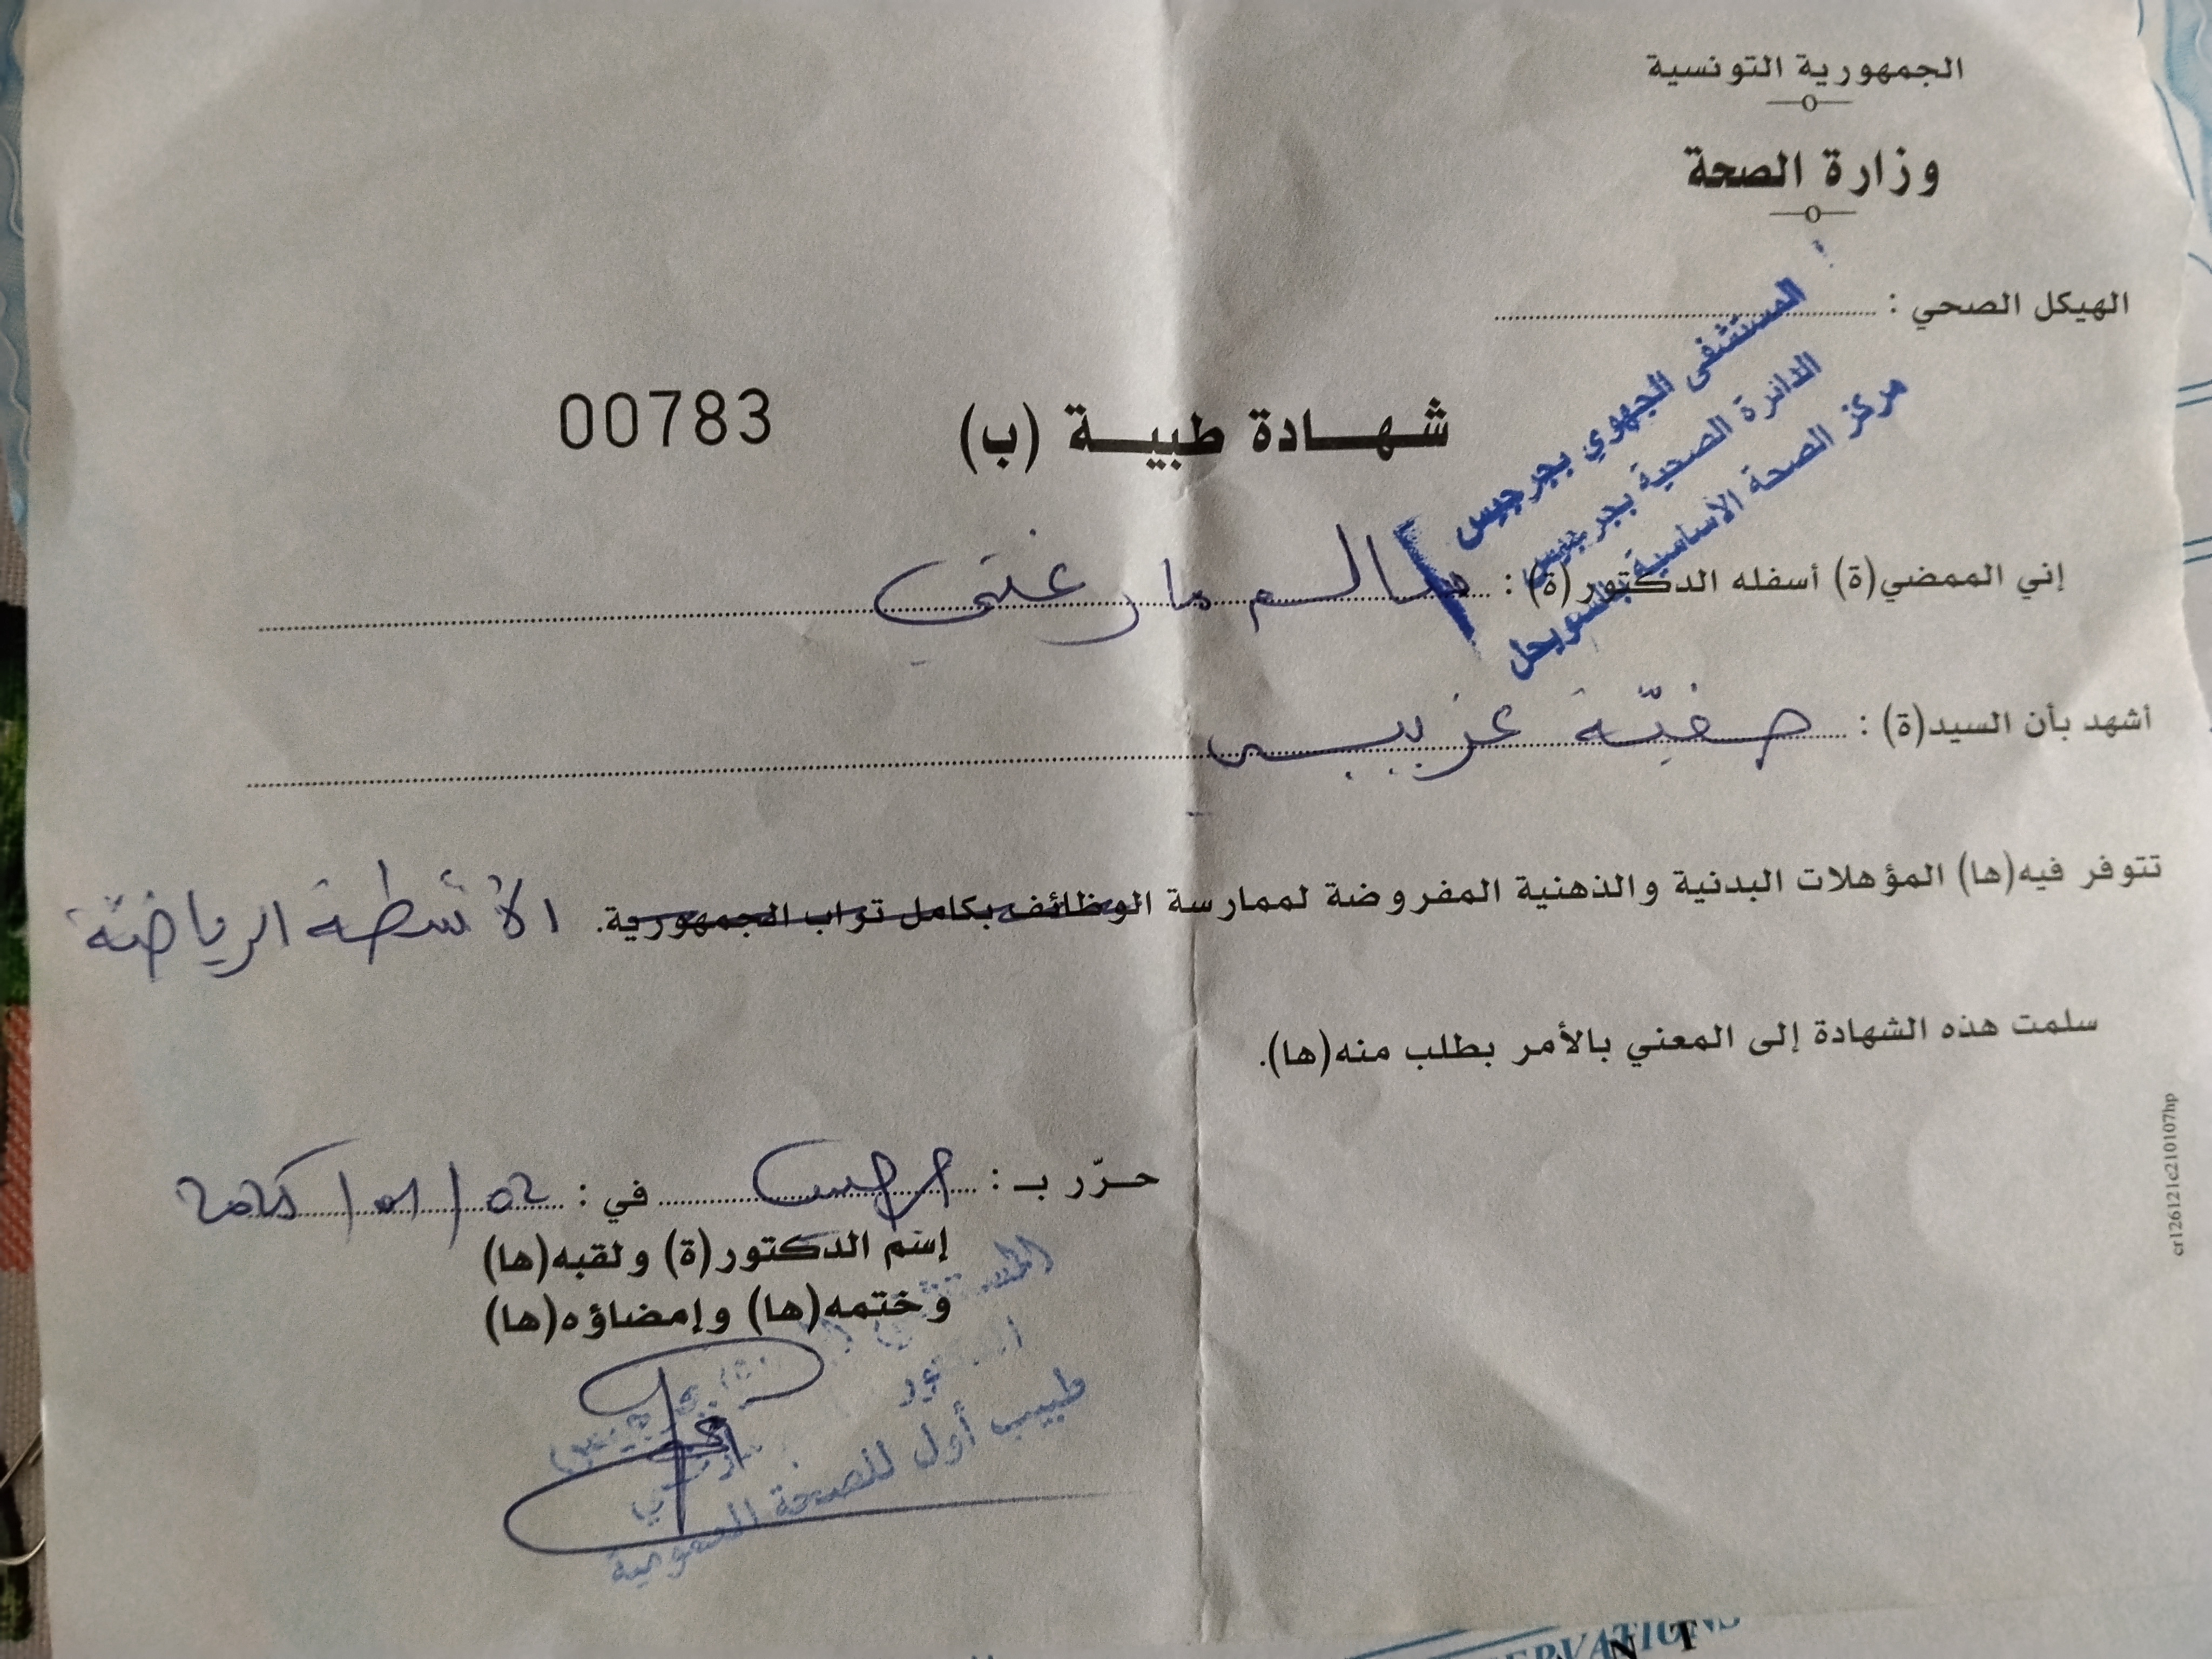 الجمهورية التونسية
وزارة الصحة
الهيكل الصحي :
المستشفى الجهوي بجرجيس
الدائرة الصحية بجرجيس
مركز الصحة الأساسية بالسويحل
شهادة طبية (ب) 00783
إني الممضي(ة) أسفله الدكتور(ة) : سالم مارغني
أشهد بأن السيد(ة) : صفيّة غريبي
تتوفر فيه(ها) المؤهلات البدنية والذهنية المفروضة لممارسة الوظائف بكامل تراب الجمهورية. الأنشطة الرياضية
سلمت هذه الشهادة إلى المعني بالأمر بطلب منه(ها).
حرّر بـ : جرجيس في : 02/01/2025
إسم الدكتور(ة) ولقبه(ها)
وختمه(ها) وإمضاؤه(ها)
طبيب أول للصحة العمومية
cr126121c210107hp